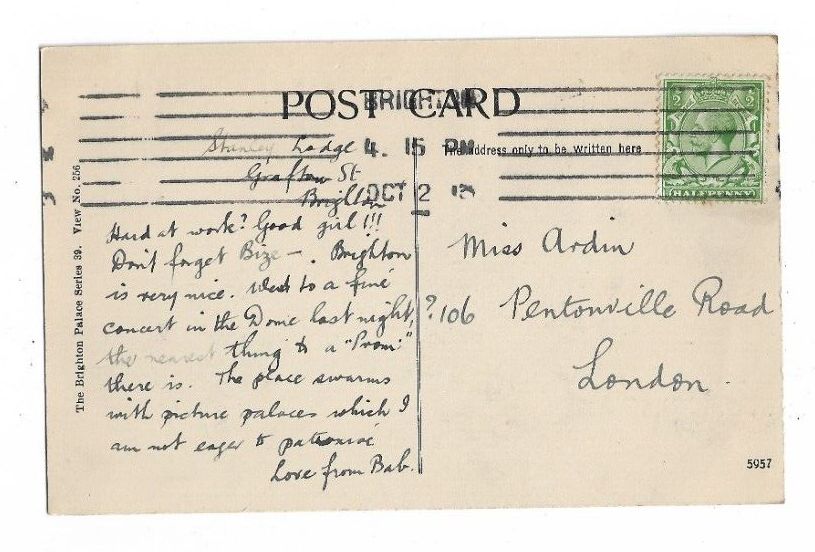 POST CARD
BRIGHTON
4. 15 PM
OCT 2
The address only to be written here
HALFPENNY
Stanley Lodge
Grafton St
Brighton
Hard at work? Good girl!!!
Don't forget Bize — . Brighton
is very nice. Went to a fine
concert in the Dome last night,
the nearest thing to a "Prom"
there is. The place swarms
with picture palaces which I
am not eager to patronise
Love from Bab.
Miss Ardin
? 106 Pentonville Road
London.
The Brighton Palace Series 39. View No. 256
5957